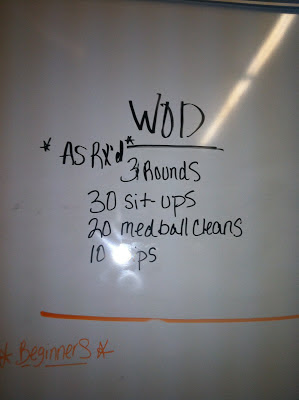 WOD
*AS RX'd*
3 Rounds
30 sit-ups
20 medball cleans
10
*Beginners*